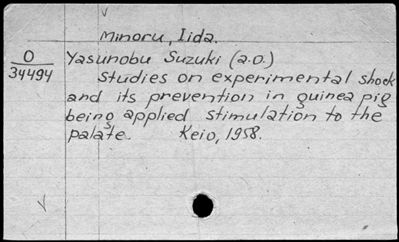 Minoru, Iida.
O
34494
Yasunobu Suzuki (a.o.)
Studies on experimental shock
and its prevention in guinea pig
being applied stimulation to the
palate. Keio, 1958.